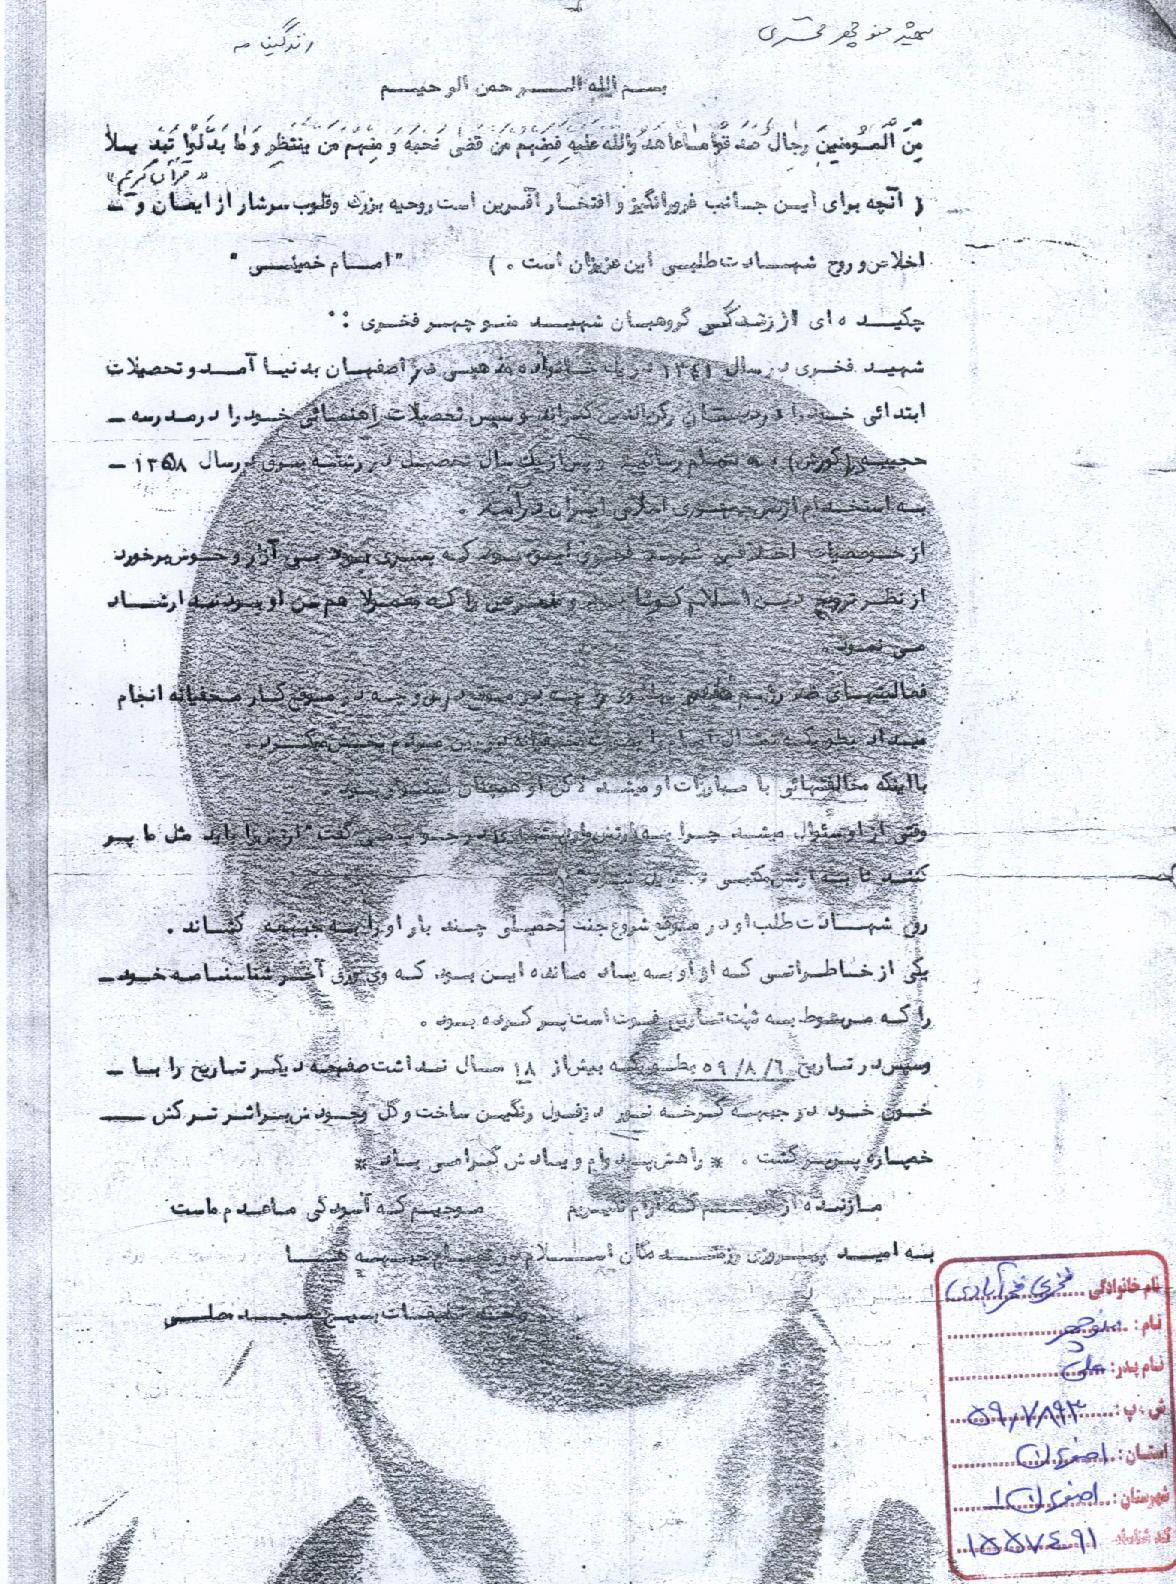 شهید منوچهر فخری
زندگینامه
بسم الله الرحمن الرحیم
مِنَ الْمُؤمِنینَ رِجالٌ صَدَقُوا ماعاهَدُواللهَ عَلَیْهِ فَمِنْهُمْ مَنْ قَضیٰ نَحْبَهُ وَ مِنْهُمْ مَنْ یَنْتَظِر وَ مٰا بَدَّلُوٰا تَبْدِیلاً
"قرآن کریم"
( آنچه برای این جانب غرورانگیز و افتخار آفرین است روحیه بزرگ وقلوب سرشار از ایمان و –
اخلاص و روح شهادت طلبی این عزیزان است . ) "امام خمینی"
چکیده ای از زندگی گروهبان شهید منوچهر فخری :
شهید فخری در سال ۱۳۴۱ در یک خانواده مذهبی در اصفهان بدنیا آمد و تحصیلات
ابتدائی خود را در دبستان گذراند و سپس تحصیلات راهنمائی خود را در مدرسه –
حجتیه (کورش) به اتمام رسانید و پس از یک سال تحصیل در رشته برق در سال ۱۳۵۸ –
به استخدام ارتش جمهوری اسلامی ایران در آمد .
از خصوصیات اخلاقی شهید فخری این بود که بسیار بی آزار و خوش برخورد
از نظر ترویج دین اسلام کوشا بود و را که معمولا هم سن او بودند ارشاد
می نمود .
فعالیتهای ضد رژیم پهلوی را چه در و چه در محل کار مخفیانه انجام
میداد بطوریکه امام را بصورت مخفیانه در بین مردم پخش میکرد .
بااینکه مخالفتهائی با مبارزات او میشد لاکن او همچنان استوار بود .
وقتی از او سئوال میشد چرا به ارتش در جواب می گفت ارتش را باید مثل ما پر
کنند تا به ارتش مکتبی تبدیل شود
روح شهادت طلب او در موقع شروع جنگ تحمیلی چند بار او را به جبهه کشاند .
یکی از خاطراتی که از او به یاد مانده این بود که وی ورق آخر شناسنامه خود –
را که مربوط به ثبت تاریخ فوت است پر کرده بود .
وسپس در تاریخ ۵۹/۸/۶ بطوریکه بیش از ۱۸ سال نداشت صفحه دیگر تاریخ را با –
خون خود در جبهه کرخه نور دزفول رنگین ساخت و گل وجودش بر اثر ترکش —
خمپاره پرپر گشت . * راهش پردوام و یادش گرامی باد *
مازنده از آنیم که آرام نگیریم موجیم که آسودگی ما عدم ماست
به امید پیروزی رزمندگان اسلام در تمام جبهه ها
تبلیغات بسیج مسجد مصلی
نام خانوادگی فخری فخرآبادی
نام : منوچهر
نام پدر : علی
ش . پ : ۵۹/۷۸۹۳
استان : اصفهان
شهرستان : اصفهان ۱
کد شناسائی ۱۵۵۷۴۹۱